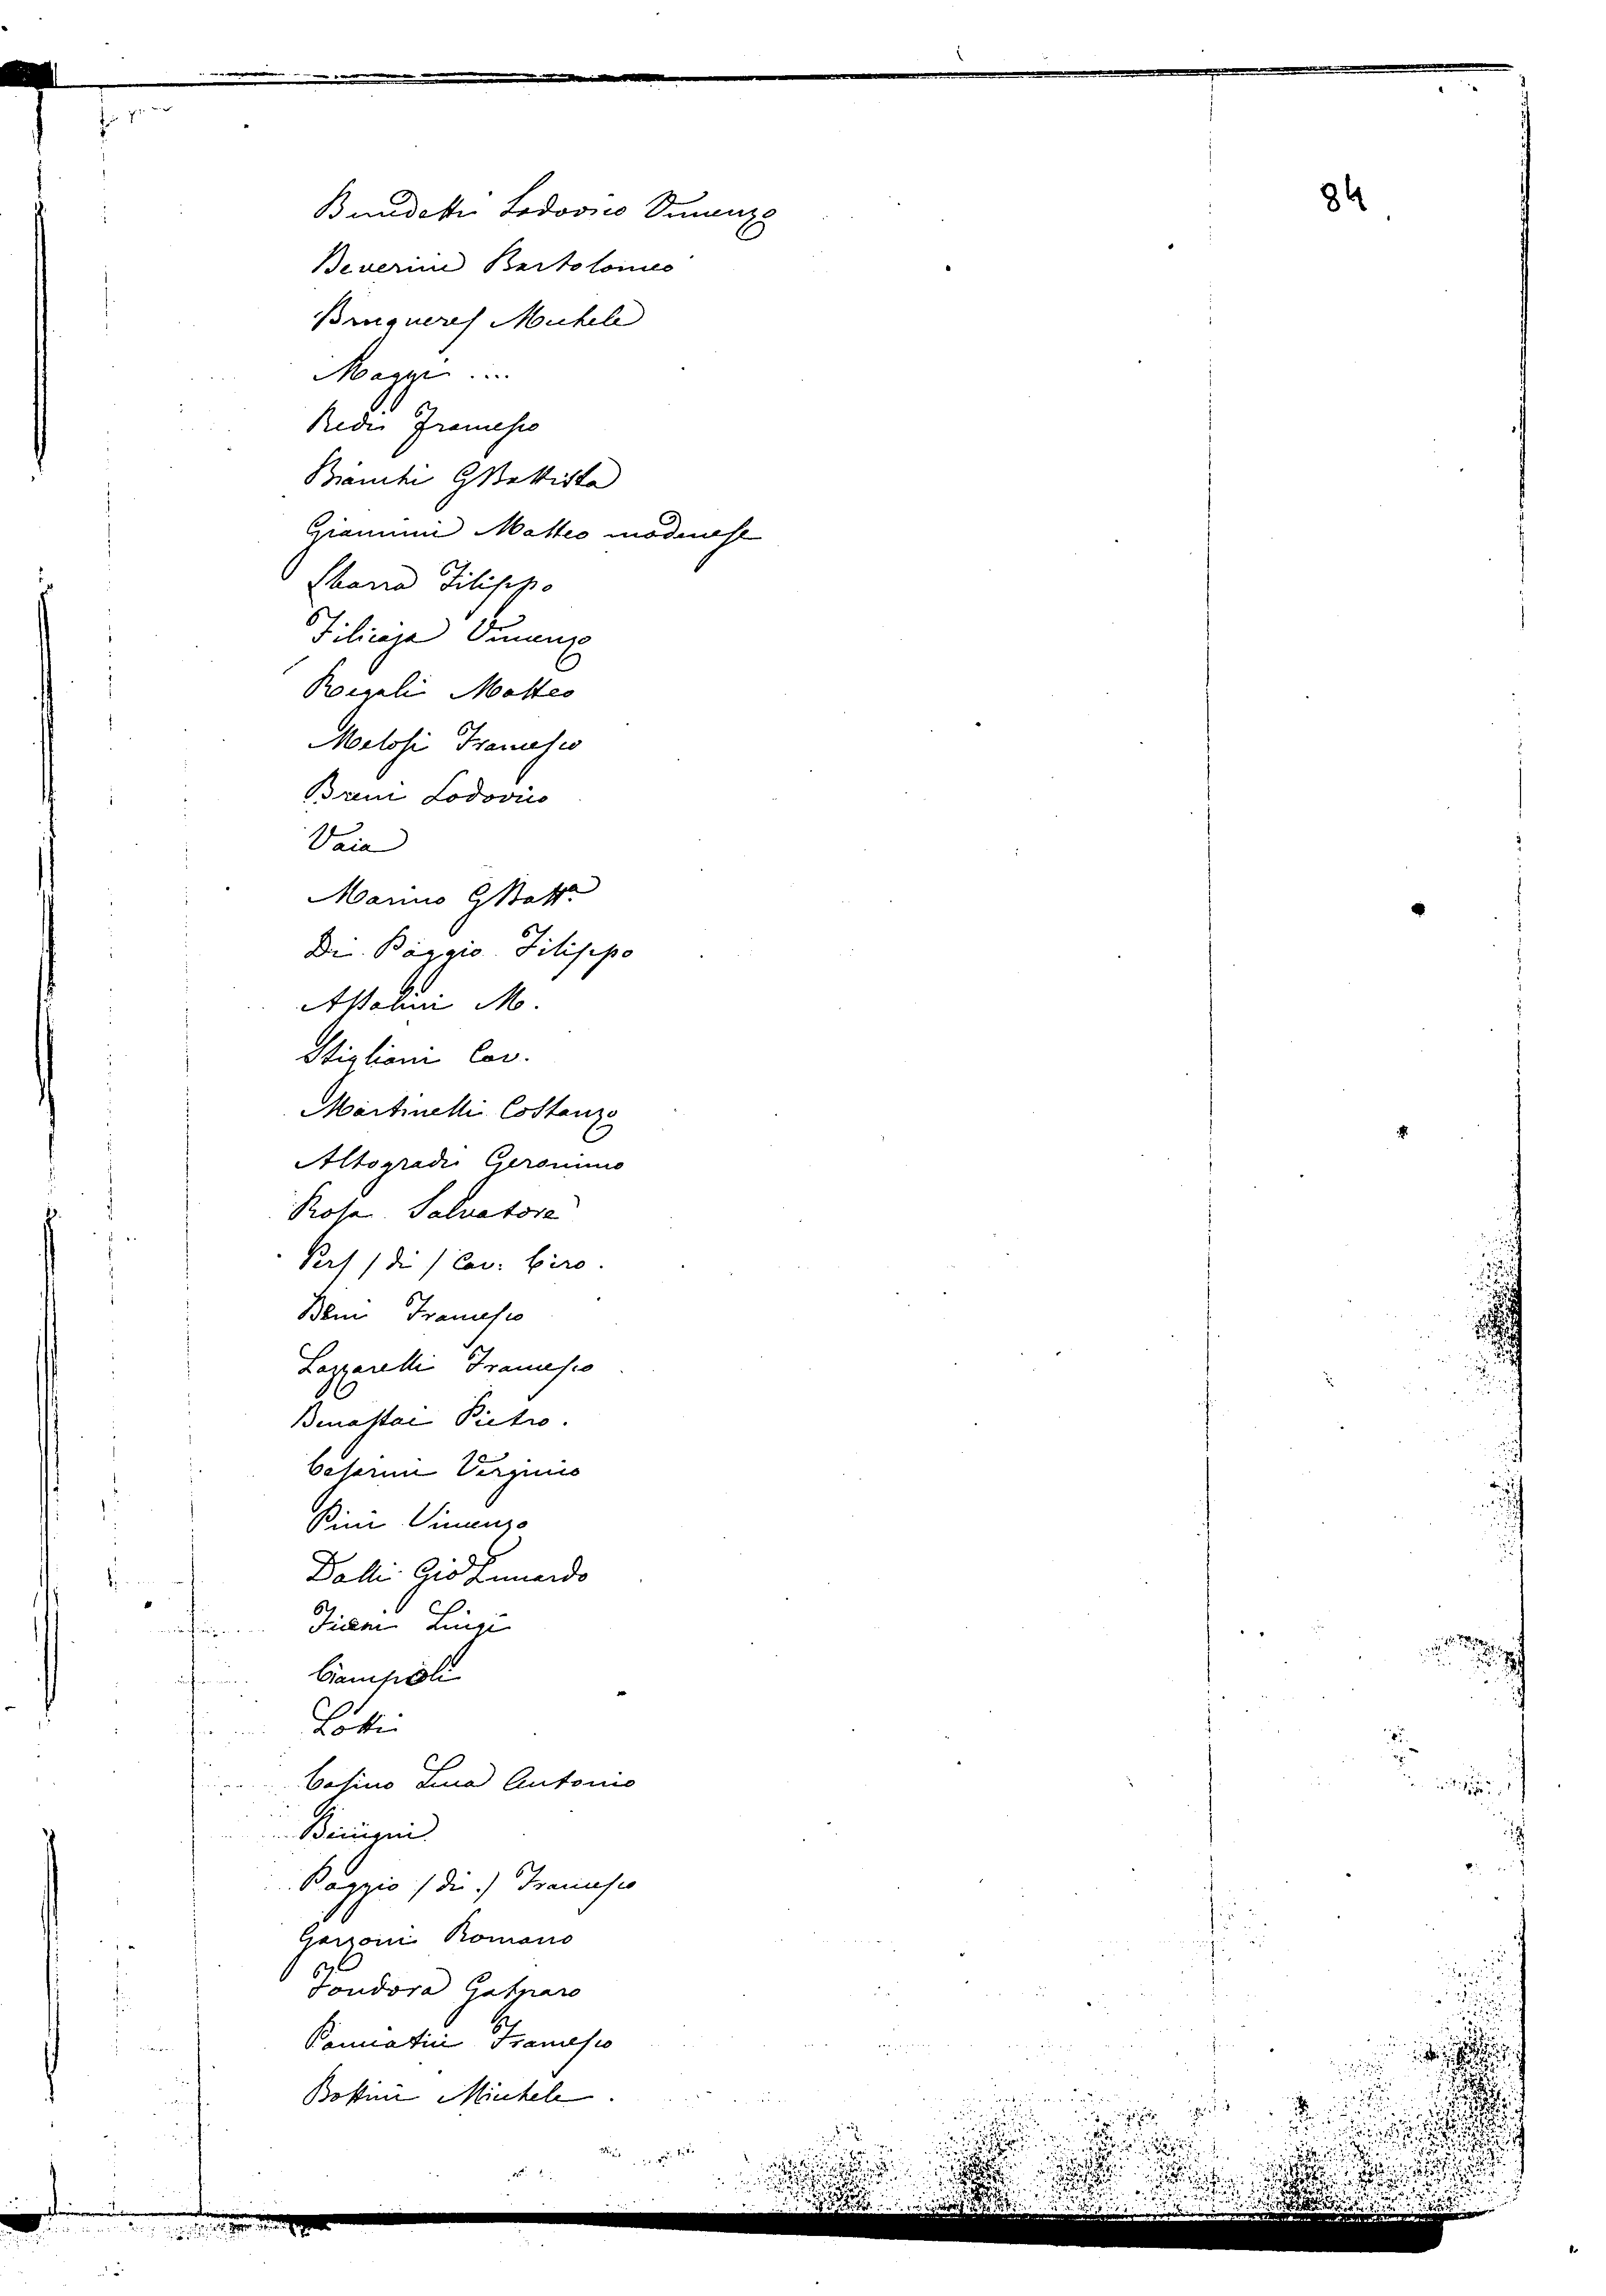 84
Benedetti Lodovico Vincenzo
Beverini Bartolomeo
Brugueres Michele
Maggi ....
Redi Francesco
Bianchi GBattista
Giannini Matteo modenese
Sbarra Filippo
Filicaja Vincenzo
Regali Matteo
Melosi Francesco
Breni Lodovico
Vaia
Marino GBatta
Di Poggio Filippo
Assalini M.
Stigliani Cav.
Martinelli Costanzo
Altogradi Geronimo
Rosa Salvatore
Pers / di / Cav: Ciro.
Beni Francesco
Lazzarelli Francesco
Benassai Pietro.
Cesarini Verginio
Pini Vincenzo
Dalli Gio Lunardo
Fieni Luigi
Ciampoli
Lotti
Casino Luca Antonio
Benigni
Poggio / di / Francesco
Garzoni Romano
Tondora Gasparo
Panciatici Francesco
Bottini Michele.